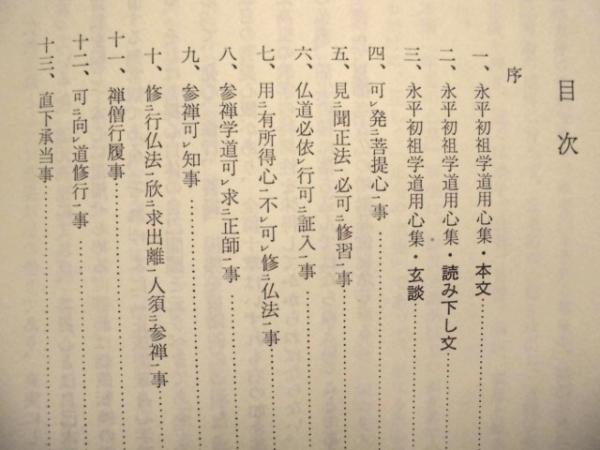 目次
序
一、永平初祖学道用心集・本文
二、永平初祖学道用心集・読み下し文
三、永平初祖学道用心集・玄談
四、可㆑発㆓菩提心㆒事
五、見㆓聞正法㆒必可㆓修習㆒事
六、仏道必依㆑行可㆓証入㆒事
七、用㆓有所得心㆒不㆑可㆑修㆓仏法㆒事
八、参禅学道可㆑求㆓正師㆒事
九、参禅可㆑知事
十、修㆓行仏法㆒欣㆓求出離㆒人須㆓参禅㆒事
十一、禅僧行履事
十二、可㆓向㆑道修行㆒事
十三、直下承当事